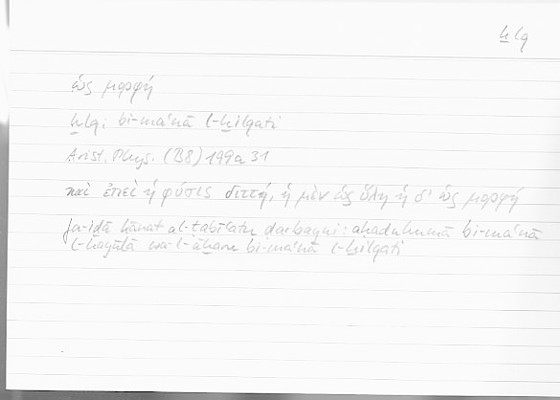 ḫlq
ὡς μορφή
ḫlq: bi-maʿnā l-ḫilqati
Arist. Phys. (B8) 199a 31
καὶ ἐπεὶ ἡ φύσις διττή, ἡ μὲν ὡς ὕλη ἡ δ' ὡς μορφή
fa-iḏā kānat al-ṭabīʿatu ḍarbayni: aḥaduhumā bi-maʿnā
l-hayūlā wa-l-āḫaru bi-maʿnā l-ḫilqati